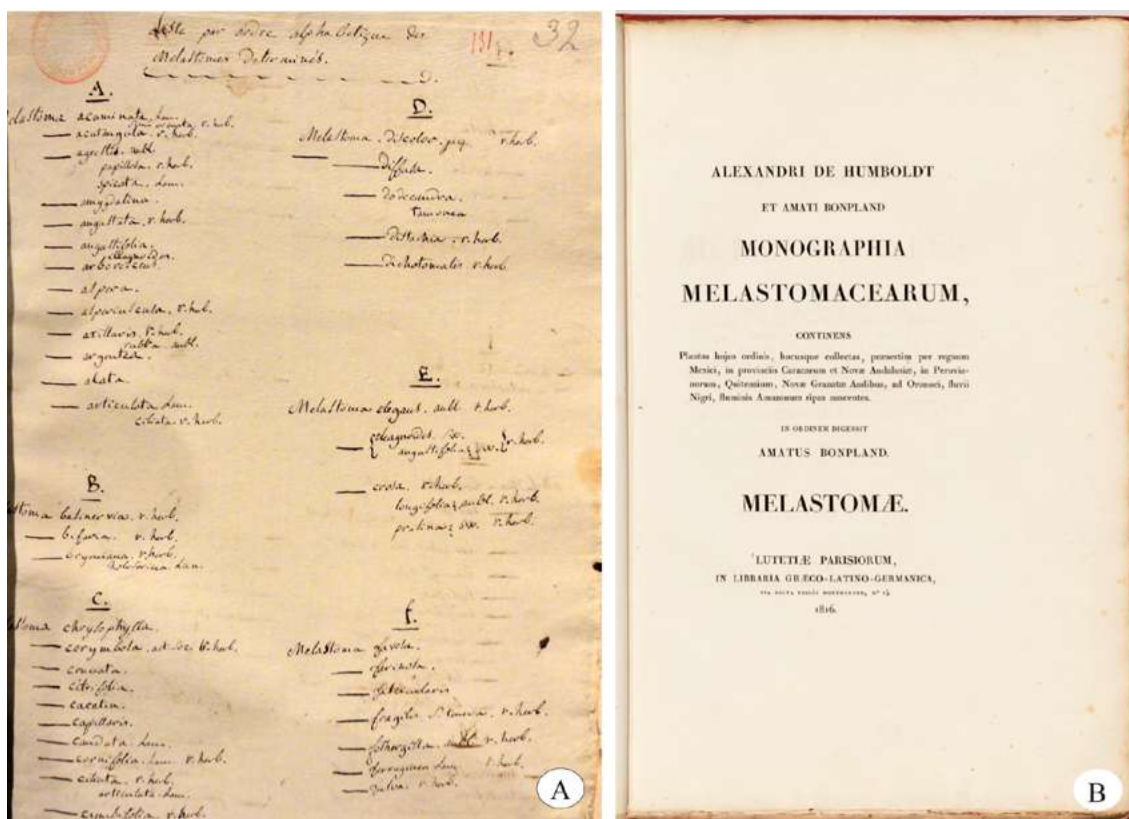 Liste par ordre alphabetique des
Melastomes Determinés.
131
32
A.
Melastoma acuminata. Lam.
acutangula. r. herb.
agrestis. aubl.
papillosa. r. herb.
spicata. Lam.
amygdalina.
angustata. r. herb.
angustifolia.
arborescens.
aspera.
asperiuscula. r. herb.
axillaris. r. herb.
rubra. aubl.
argentea.
alata
articulata Lam.
ciliata. r. herb.
B.
r. herb.
bifaria. r. herb.
r. herb.
holosericea. Lam.
C.
chrysophylla.
corymbosa. r. herb.
cruciata.
citrifolia.
cacatin.
capillaris.
caudata. Lam.
cornifolia. Lam. r. herb.
ciliata. r. herb.
articulata. Lam.
r. herb.
D.
Melastoma. discolor. r. herb
diffusa.
dodecandra.
r. herb.
dichotomatis. r. herb
E.
Melastoma elegans. aubl. r. herb.
eleagnoides. sw.
angustifolia sw. r. herb.
erosa. r. herb.
longifolia aubl. r. herb.
petiolaris sw. r. herb.
f.
Melastoma
farinosa.
fascicularis
fragilis r. herb.
fothergilla. r. herb.
ferruginea Lam r. herb.
fulva. r. herb.
A
ALEXANDRI DE HUMBOLDT
ET AMATI BONPLAND
MONOGRAPHIA
MELASTOMACEARUM,
CONTINENS
Plantas hujus ordinis, hucusque collectas, præsertim per regnum
Mexici, in provinciis Caracarum et Novæ Andalusiæ, in Peruvia-
norum, Quitensium, Novæ Granatæ Andibus, ad Oronoci, fluvii
Nigri, fluminis Amazonum ripas nascentes.
IN ORDINEM DIGESSIT
AMATUS BONPLAND.
MELASTOMÆ.
LUTETIÆ PARISIORUM,
IN LIBRARIA GRÆCO-LATINO-GERMANICA,
1816.
B